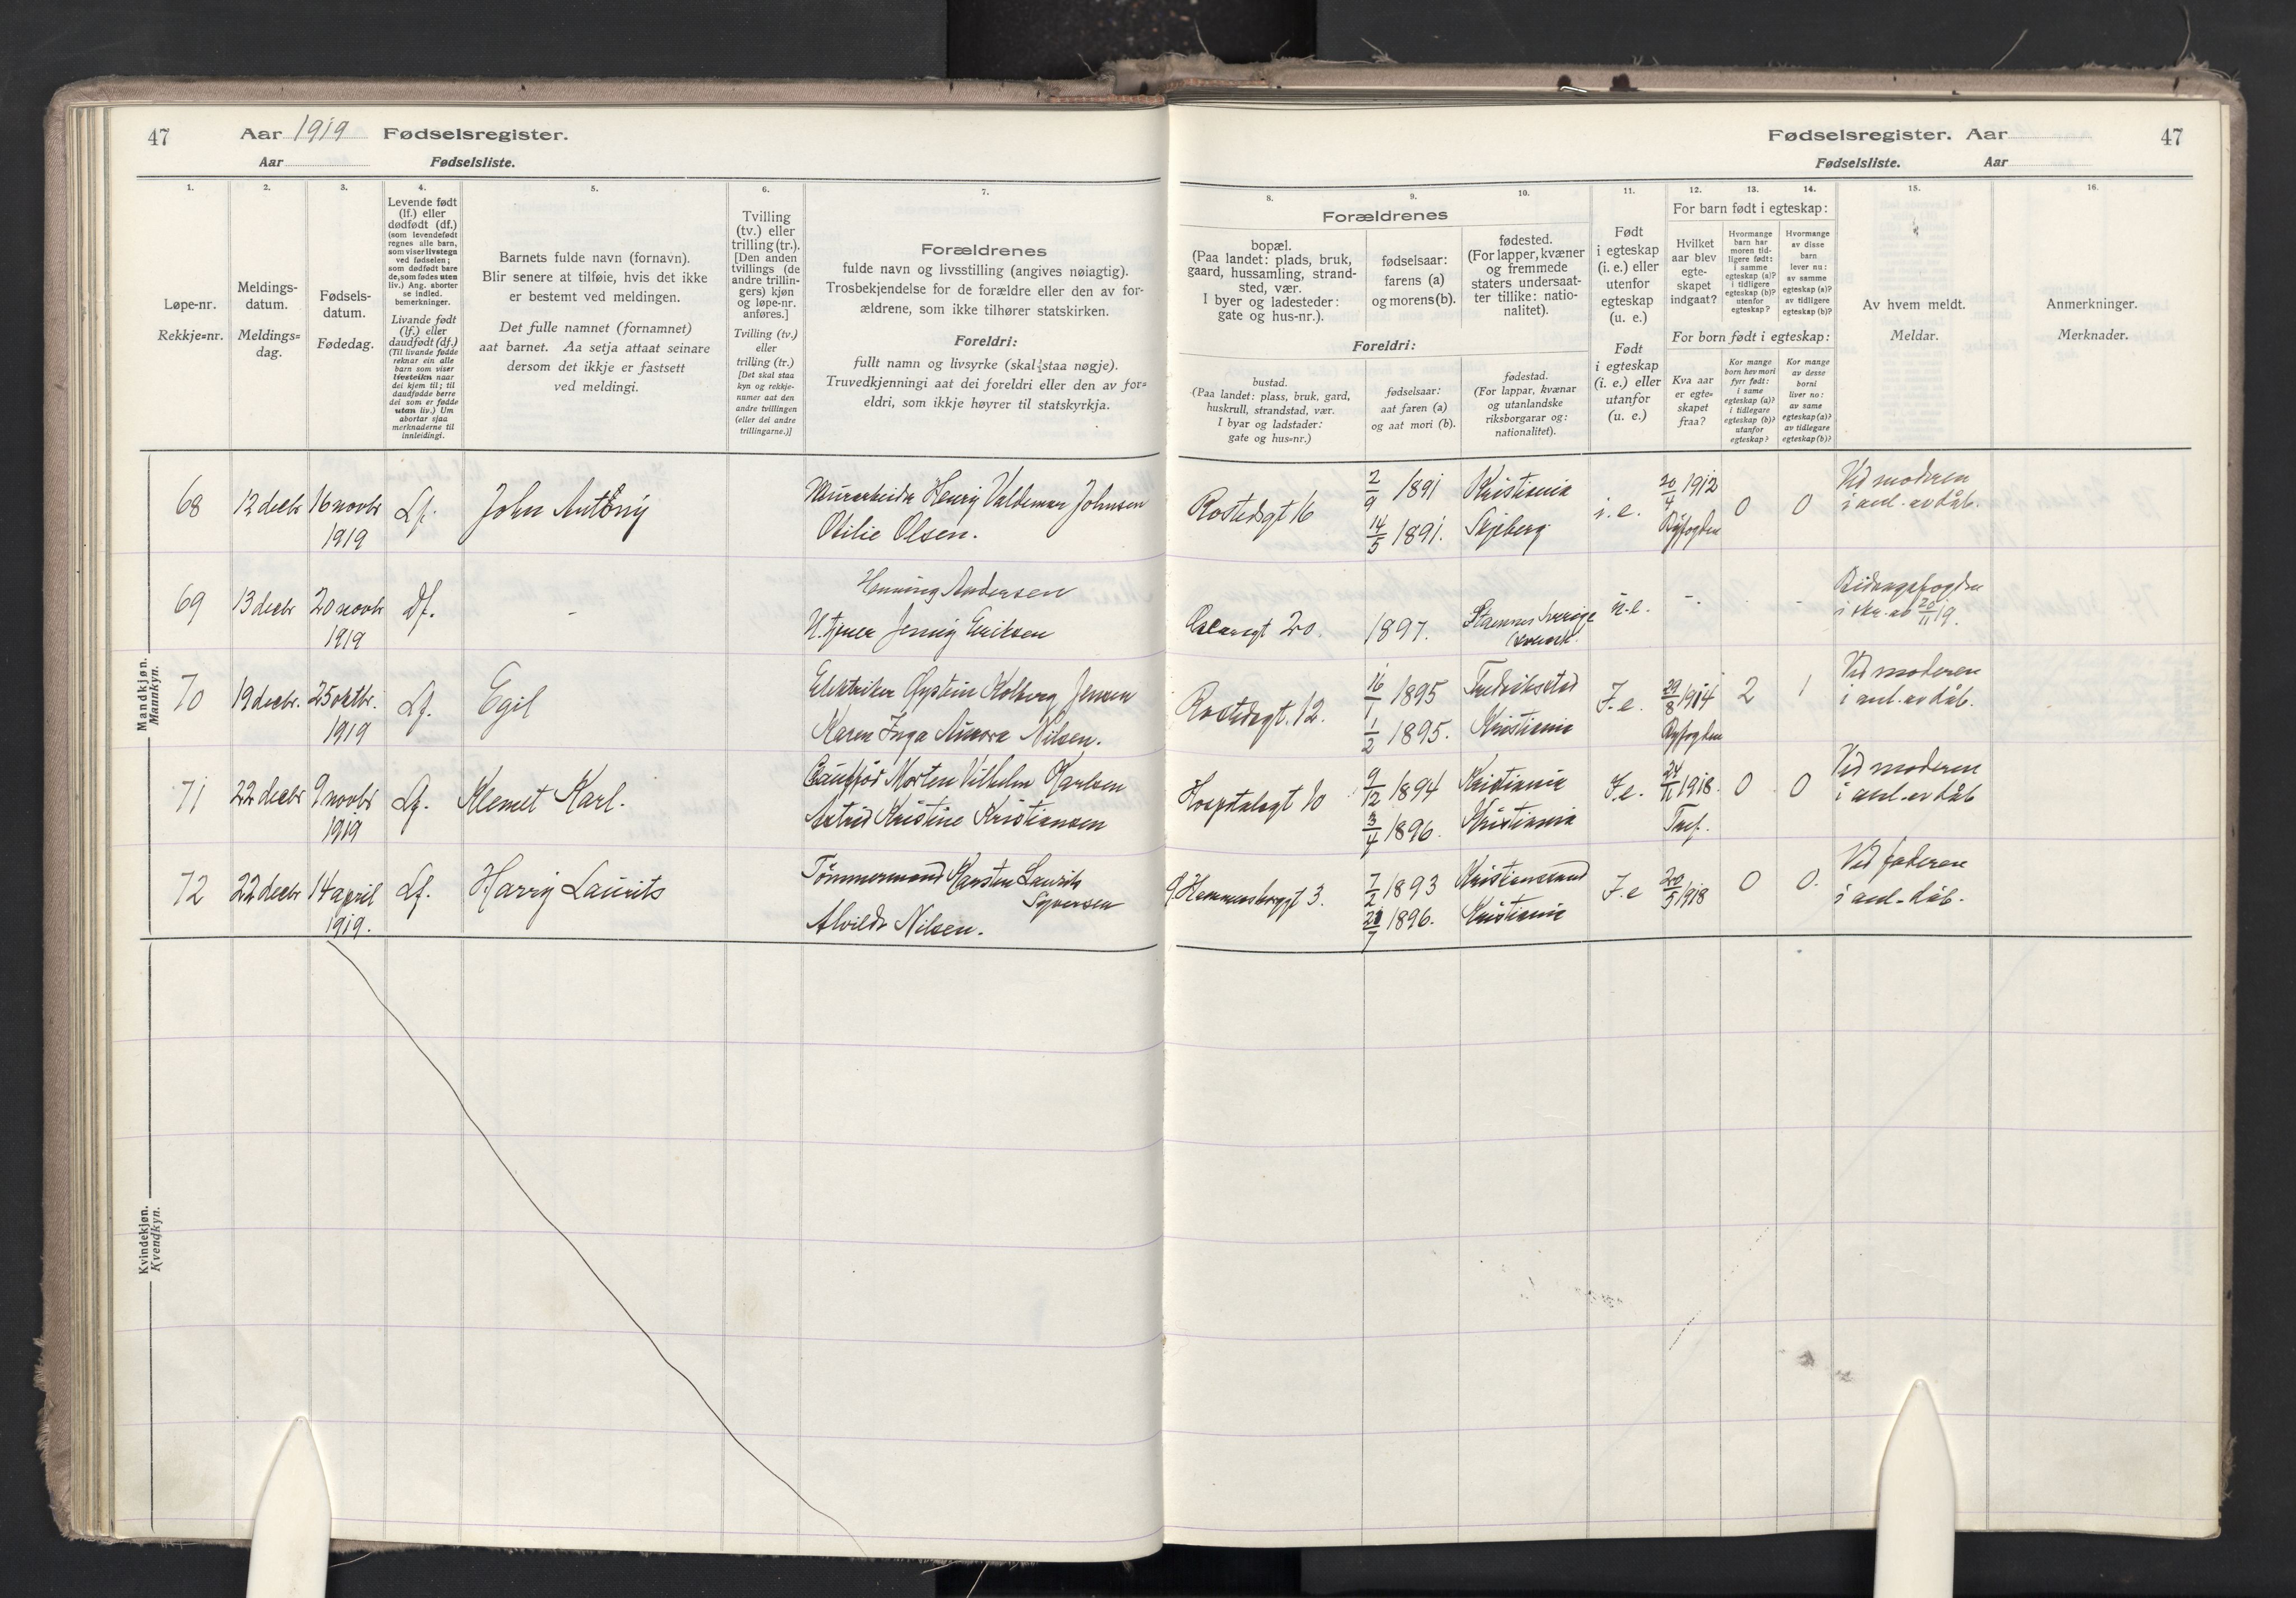 47 Aar 1919 Fødselsregister.
Aar Fødselsliste.
1. 2. 3. 4. 5. 6. 7.
Løpe-nr.
Rekkje=nr.
Meldings-
datum.
Meldings=
dag.
Fødsels-
datum.
Fødedag.
Levende født
(lf.) eller
dødfødt (df.)
(som levendefødt
regnes alle barn,
som viser livstegn
ved fødselen;
som dødfødt bare
de, som fødes uten
liv.) Ang. aborter
se indled.
bemerkninger.
Livande født
(lf.) eller
daudfødt (df.)
(Til livande fødde
reknar ein alle
barn som viser
livsteikn naar
dei kjem til; til
daudfødde berre
dei som er fødde
utan liv.) Um
abortar sjaa
merknaderne til
innleidingi.
Barnets fulde navn (fornavn).
Blir senere at tilføie, hvis det ikke
er bestemt ved meldingen.
Det fulle namnet (fornamnet)
aat barnet. Aa setja attaat seinare
dersom det ikkje er fastsett
ved meldingi.
Tvilling
(tv.) eller
trilling (tr.).
[Den anden
tvillings (de
andre trillin-
gers) kjøn
og løpe-nr.
anføres.]
Tvilling (tv.)
eller
trilling (tr.)
[Det skal staa
kyn og rekkje-
numer aat den
andre tvillingen
(eller dei andre
trillingarne.)]
Forældrenes
fulde navn og livsstilling (angives nøiagtig).
Trosbekjendelse for de forældre eller den av for-
ældrene, som ikke tilhører statskirken.
Foreldri:
fullt namn og livsyrke (skal staa nøgje).
Truvedkjenningi aat dei foreldri eller den av for=
eldri, som ikkje høyrer til statskyrkja.
Mandkjøn.
Mannkyn.
68 12 decbr 16 novbr Lf. John Antony Murarbeider Henry Valdemar Johnsen
1919 Otilie Olsen.
Henning Andersen
69 13 decbr 20 novbr Df. - H.tjener Jenny Eriksen
1919
70 19 decbr. 25 oktbr. Lf. Egil Elektriker Øystein Kolberg Jensen
1919 Karen Inga Aurora Nilsen.
71 22 decbr 9 novbr Lf. Klemet Karl. Morten Vilhelm Karlsen
1919 Astrid Kristine Kristiansen
72 22 decbr 14 april Lf. Harry Laurits Tømmermand Karsten Laurits
Syversen
1919. Alvilde Nilsen.
Kvindekjøn.
Kvendkyn.
Fødselsregister. Aar 47
Fødselsliste. Aar
8. 9. 10. 11. 12. 13. 14. 15. 16.
Forældrenes
bopæl.
(Paa landet: plads, bruk,
gaard, hussamling, strand-
sted, vær.
I byer og ladesteder:
gate og hus-nr.).
fødselsaar:
farens (a)
og morens (b).
fødested.
(For lapper, kvæner
og fremmede
staters undersaat-
ter tillike: natio-
nalitet).
Foreldri:
bustad.
(Paa landet: plass, bruk, gard,
huskrull, strandstad, vær.
I byar og ladstader:
gate og hus=nr.)
fødselsaar:
aat faren (a)
og aat mori (b).
fødestad.
(For lappar, kvænar
og utanlandske
riksborgarar og:
nationalitet).
Født
i egteskap
(i. e.) eller
utenfor
egteskap
(u. e.)
Født
i egteskap
(i. e.) eller
utanfor
egteskap
(u. e.)
For barn født i egteskap:
Hvilket
aar blev
egte-
skapet
indgaat?
Hvormange
barn har
moren tid-
ligere født:
i samme
egteskap (a)?
i tidligere
egteskap (b)?
utenfor
egteskap?
Hvormange
av disse
barn
lever nu:
av samme
egteskap (a)?
av tidligere
egteskap (b)?
For born født i egteskap:
Kva aar
er egte=
skapet
fraa?
Kor mange
born hev mori
fyrr født:
i same
egteskap (a)?
i tidlegare
egteskap (b)?
utanfor
egteskap?
Kor mange
av desse
borni
liver no:
av same
egteskap (a)?
av tidlegare
egteskap (b)?
Av hvem meldt.
Meldar.
Anmerkninger.
Merknader.
Rostedsgt 16 2/9 1891 Kristiania i. e. 20/4 1912 0 0 Ved moderen
14/5 1891. Skjeberg. Byfogden i anl. av dåb.
20. 1897. u. e. - . - Bidragsfogden
i skr. av 20/11 19.
Rostedsgt. 12. 16/1 1895 Fredrikstad I. e. 29/8 1914 2 1 Ved moderen
1/2 1895. Kristiania Byfogden i anl. av dåb.
Hospitalsgt 10 9/12 1894 Kristiania I. e. 24/11 1918. 0 0 Ved moderen
3/4 1896. Kristiania Tref. i anl. av dåb
Hammersborggt 3. 7/2 1893 Kristiansund I. e 20/5 1918 0 0. Ved faderen
21/7 1896. Kristiania i anl. dåb.